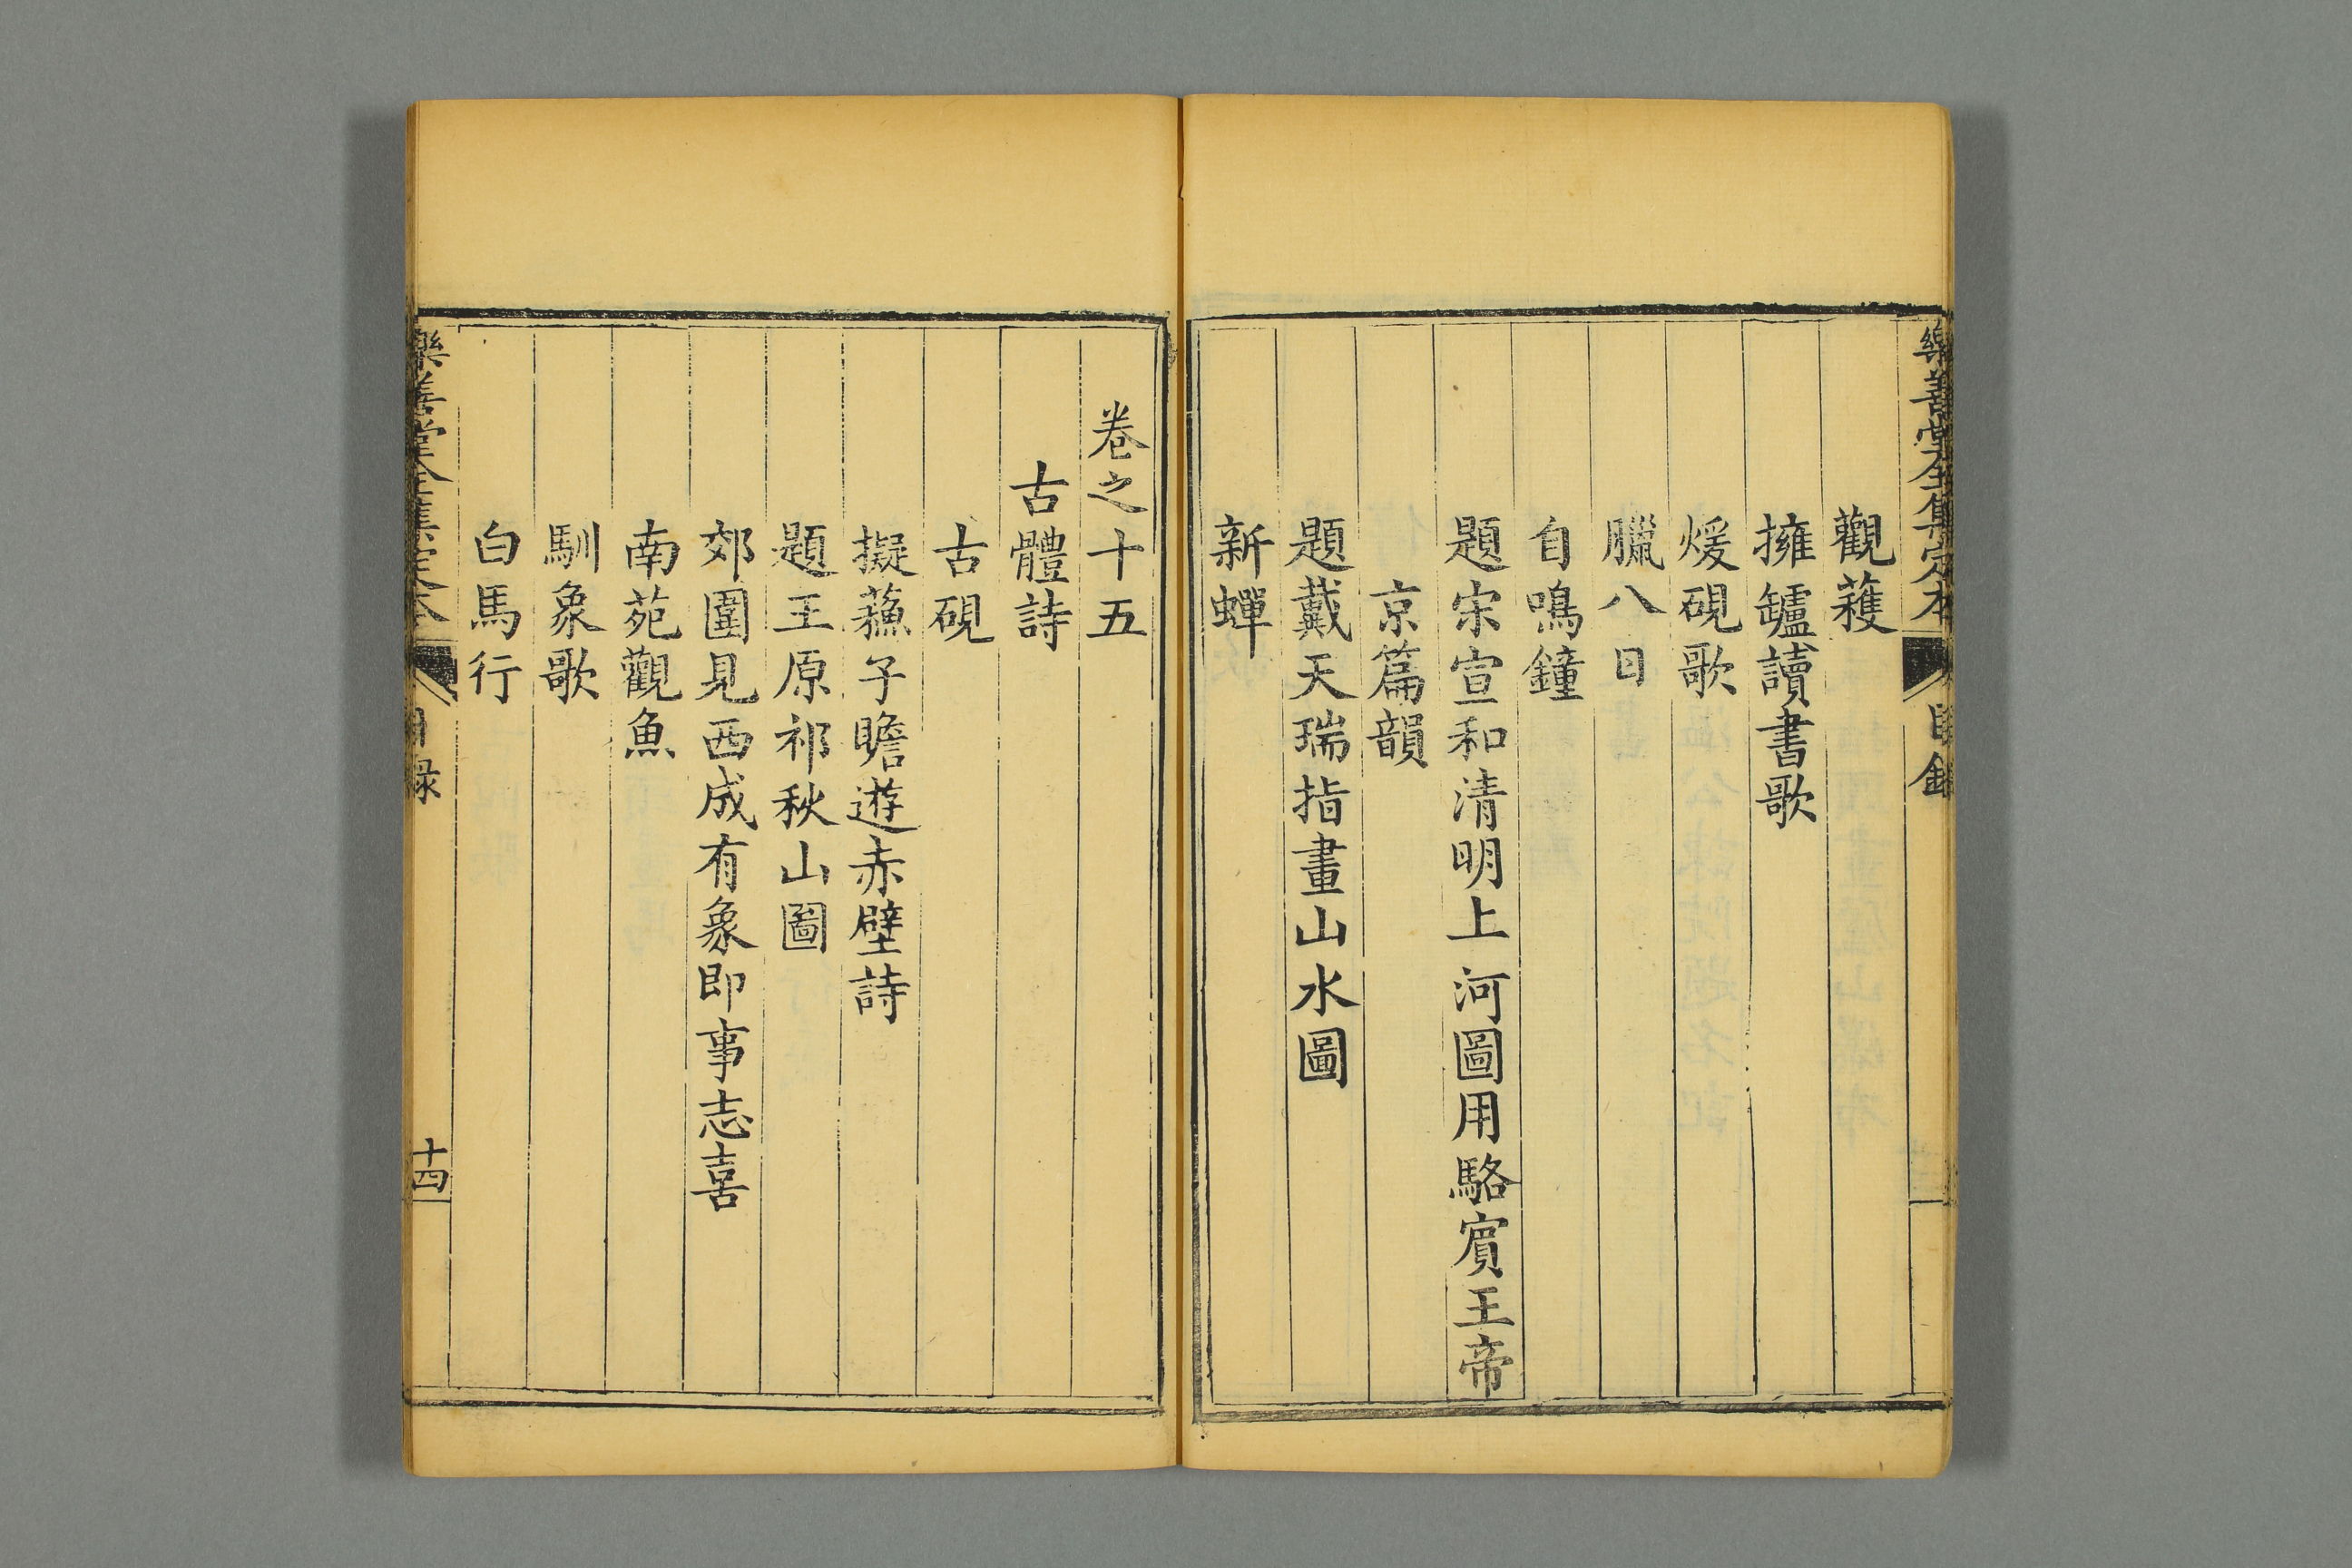 樂善堂全集定本
目錄
觀蔆
擁鑪讀書歌
煖硯歌
臘八日
自鳴鐘
題宋宣和清明上河圖用駱賓王帝
京篇韻
題戴天瑞指畫山水圖
新蟬
卷之十五
古體詩
古硯
擬蘓子瞻遊赤壁詩
題王原祁秋山圖
郊圍見西成有象即事志喜
南苑觀魚
馴象歌
白馬行
樂善堂全集定本
目錄
十四